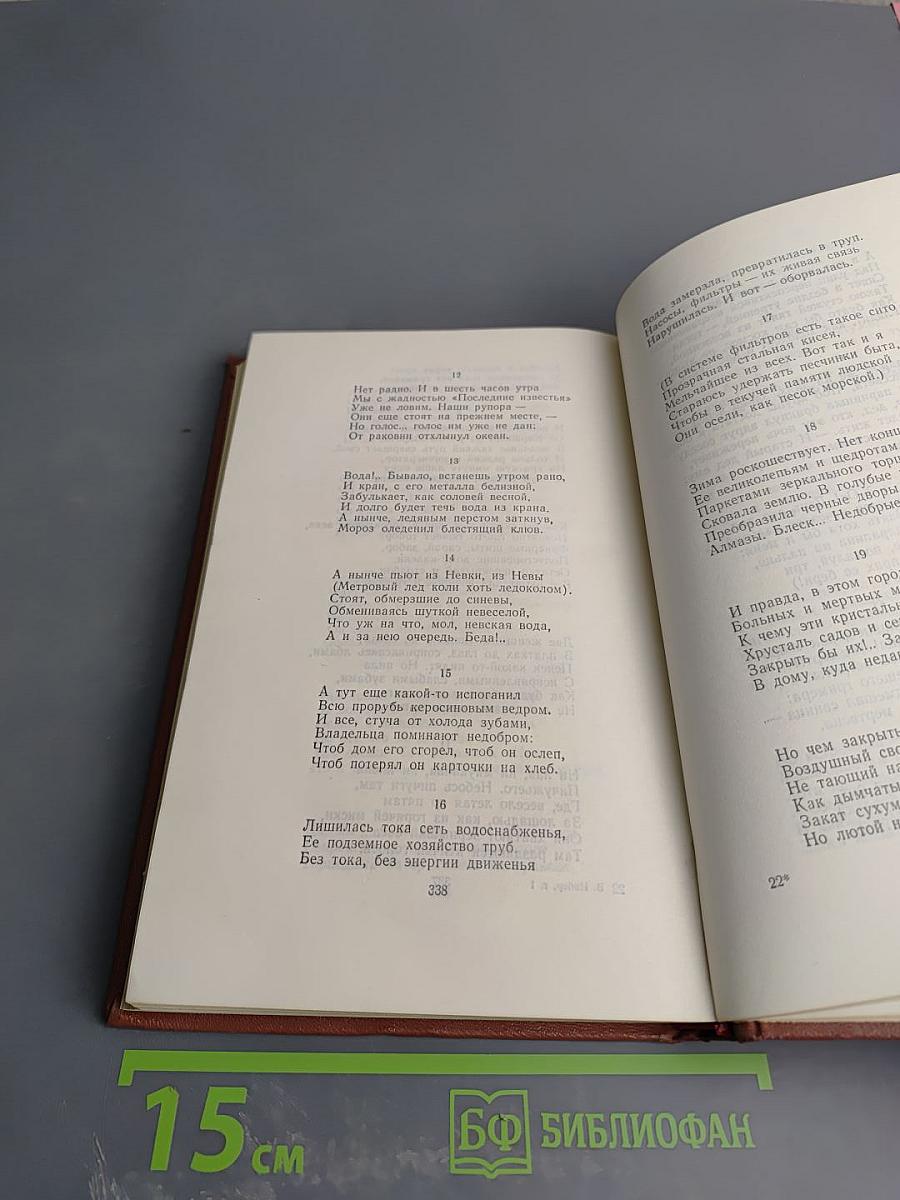 12
Нет радио. И в шесть часов утра
Мы с жадностью «Последние известья»
Уже не ловим. Наши рупора —
Они еще стоят на прежнем месте, —
Но голос... голос им уже не дан:
От раковин отхлынул океан.
13
Вода!.. Бывало, встанешь утром рано,
И кран, с его металла белизной,
Забулькает, как соловей весной,
И долго будет течь вода из крана.
А нынче, ледяным перстом заткнув,
Мороз оледенил блестящий клюв.
14
А нынче пьют из Невки, из Невы
(Метровый лед коли хоть ледоколом).
Стоят, обмерзшие до синевы,
Обмениваясь шуткой невеселой,
Что уж на что, мол, невская вода,
А и за нею очередь. Беда!..
15
А тут еще какой-то испоганил
Всю прорубь керосиновым ведром.
И все, стуча от холода зубами,
Владельца поминают недобром:
Чтоб дом его сгорел, чтоб он ослеп,
Чтоб потерял он карточки на хлеб.
16
Лишилась тока сеть водоснабженья,
Ее подземное хозяйство труб.
Без тока, без энергии движенья
338
Вода замерзла, превратилась в труп.
Насосы, фильтры — их живая связь
Нарушилась. И вот — оборвалась.
17
(В системе фильтров есть такое сито,
Прозрачная стальная кисея,
Мельчайшее из всех. Вот так и я
Стараюсь удержать песчинки быта,
Чтобы в текучей памяти людской
Они осели, как песок морской.)
18
Зима роскошествует. Нет
Ее великолепьям и щедротам
Паркетами зеркального
Сковала землю. В голубые
Преобразила черные дворы
Алмазы. Блеск... Недобрые
19
И правда, в этом
Больных и мертвых
К чему эти
Хрусталь садов и
Закрыть бы их!..
В дому, куда
Но чем закрыть
Воздушный
Не тающий
Как дымчаты
Закат
Но лютой
22*
15 см
БФ БИБЛИОФАН